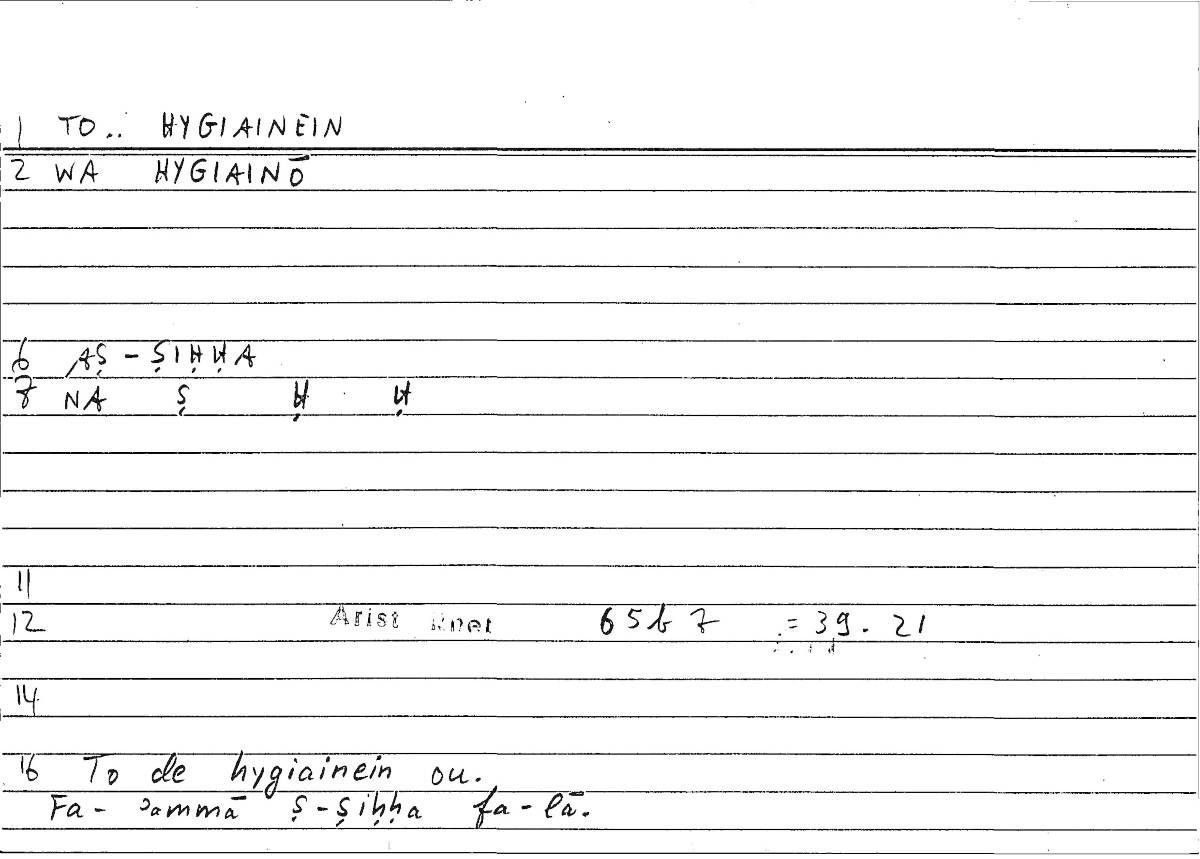 1 TO.. HYGIAINEIN
2 WA HYGIAINŌ
6 AṢ-ṢIḤḤA
7 NA Ṣ Ḥ Ḥ
11
12 Arist Rhet 65b7 = 39.21
14
16 To de hygiainein ou.
Fa- ʾammā ṣ-ṣiḥḥa fa-lā.